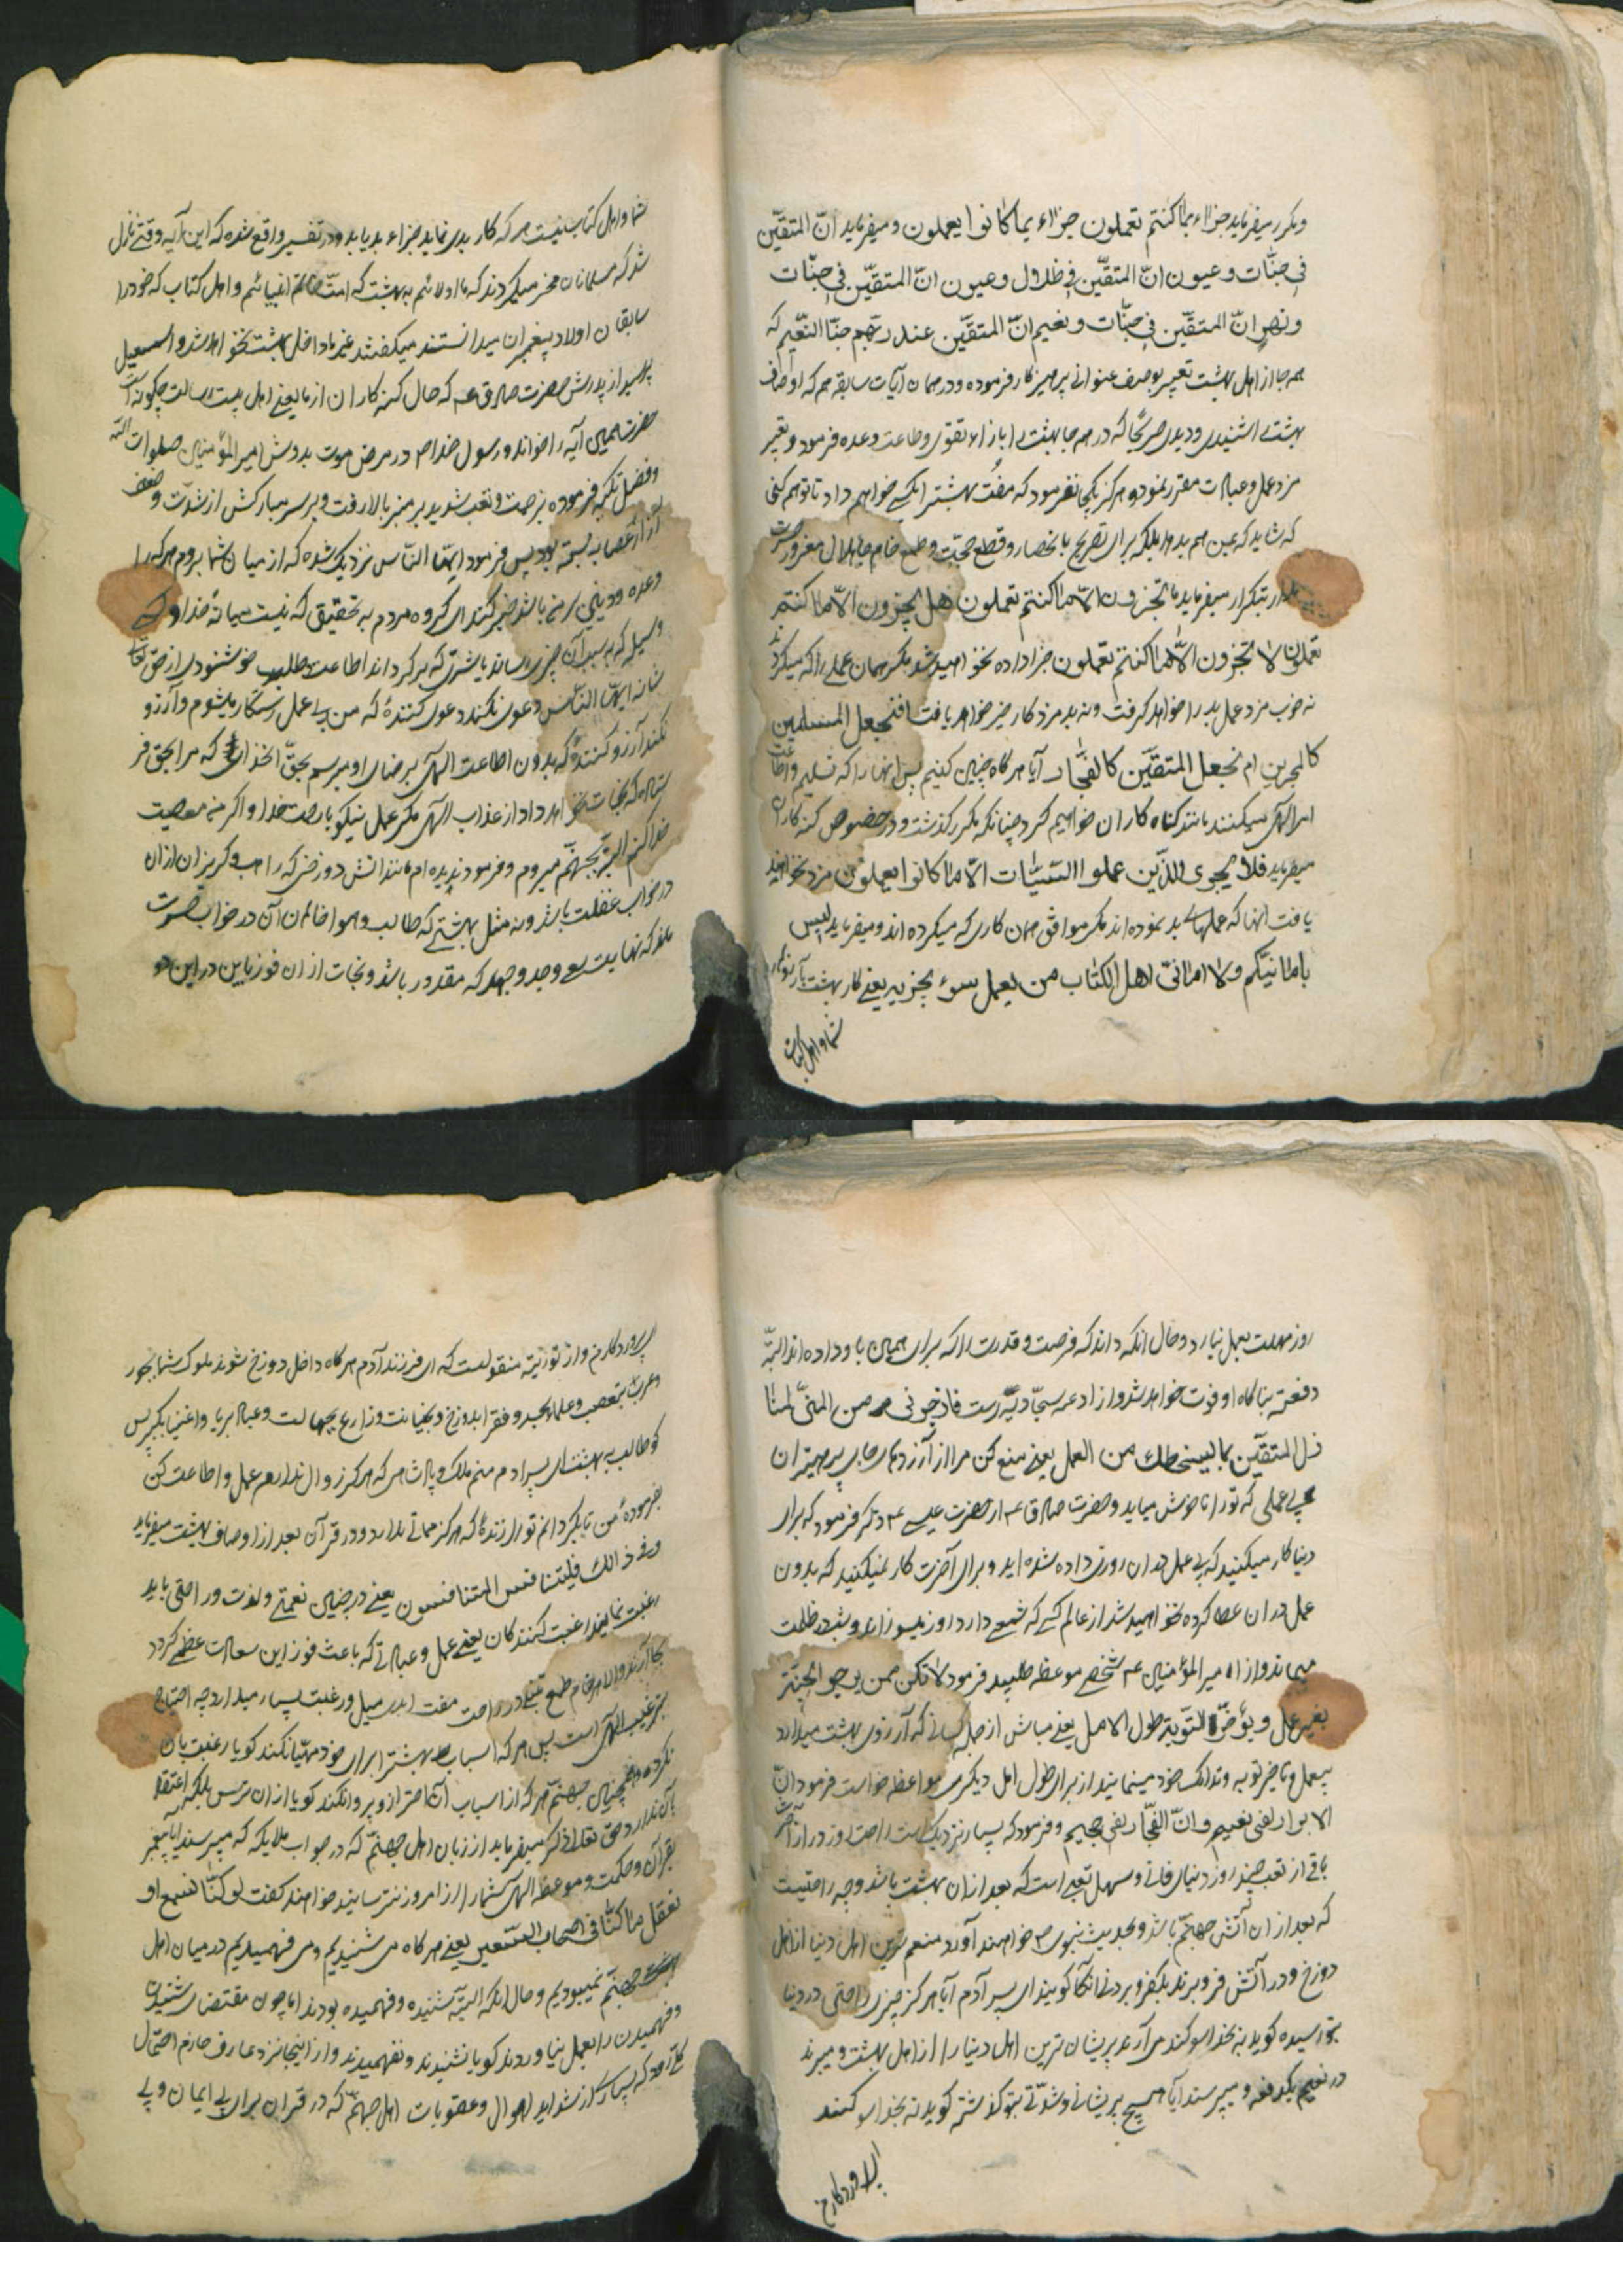 ومکرر میفرماید جزاء بما کنتم تعملون جزاء بما کانوا یعملون و میفرماید انّ المتقیّن
فی جنّات وعیون انّ المتقیّن فی ظلال وعیون انّ المتقیّن فی جنّات
ونهر انّ المتقیّن فی جنّات ونعیم انّ المتقیّن عند ربّهم جنّات النّعیم که
همه جا از اهل بهشت تعبیر بوصف عنوانی پرهیزکار فرموده ودر همان آیات سابقه هم که اوصاف
بهشت را شنیدی ودیدی صریحًا که در همه جا بهشت را بازاء تقوی وطاعت وعده فرمود وبغیر
مزد عمل وعبادت مقرر ننموده هرگز یکجا نفرمود که مفت بهشت را بکسی خواهم داد تا تو هم کنی
که شاید که بمن هم بدهد بلکه برای تصریح بانحصار و قطع حجّت وطمع خام جاهلان مغرور
بتکرار میفرماید ما تجزون الاّ ما کنتم تعملون هل تجزون الاّ ما کنتم
تعملون لا تجزون الاّ ما کنتم تعملون جزا داده نخواهید شد مگر همان عملی را که میکردید
نه خوب مزد عمل بد را خواهد گرفت ونه بد مزد کار خیر خواهد یافت افنجعل المسلمین
کالمجرمین ام نجعل المتقیّن کالفجّار آیا هرگاه چنین کنیم پس آنها را که تسلیم واطاعت
امر الهی میکنند مانند گناه کاران خواهیم کرد چنانکه مکرر گذشت ودر خصوص گنه کاران
میفرماید فلا یجزی الذّین عملوا السّیّئات الاّ ما کانوا یعملون مزد نخواهند
یافت آنها که عملهای بد نموده اند مگر موافق همان کاری که میکرده اند ومیفرماید لیس
بامانیّکم ولا امانیّ اهل الکتاب من یعمل سوء یجز به یعنی کار بهشت بآرزوی
شما واهل کتاب
شما واهل کتاب نیست هر که کار بدی نماید جزاء بد یابد ودر تفسیر واقع شده که این آیه وقتی نازل
شد که مسلمانان فخر میکردند که ما اولائیم ببهشت که امت خاتم انبیائیم واهل کتاب که خود را
سابقان اولاد پیغمبران میدانستند میگفتند غیر ما داخل بهشت نخواهد شد واسمعیل
پرسید از پدرش حضرت صادق ع که حال گنه کاران از ما یعنی اهل بیت رسالت چگونه است
حضرت همین آیه را خواند ورسول خدا ص در مرض موت بدوش امیر المؤمنین صلوات الله
وفضل تکیه فرموده بزحمت وتعب شدید بر منبر بالا رفت وبر سر مبارکش از شدّت وضعف
عصابه بسته بود پس فرمود ایّها النّاس نزدیک شده که از میان شما بروم هر که را
وعده ودینی بر من باشد خبر کند ای گروه مردم به تحقیق که نیست میانهٔ خدا و کسی
وسیله که به سبب آن چیزی رساند یا شری که برگرداند الا اطاعت وطلب خوشنودی از حق تعالی
شانه ایّها النّاس دعوی نکند دعوی کنندهٔ که من بی عمل رستگار میشوم وآرزو
نکند آرزو کنندهٔ که بدون اطاعت الهی برضای او میرسم بحقّ آنخدائی که مرا بحق فر
ستاده که نجات نخواهد داد از عذاب الهی مگر عمل نیکو با رحمت خدا واگر من معصیت
خدا کنم البتّه بجهنّم میروم وفرمود ندیده ام مانند آتش دوزخی که راهب وگریزان از آن
در خواب غفلت باشد ونه مثل بهشتی که طالب وهوا خاهان آن در خواب
ماند که نهایت سعی وجد وجهد که مقدور باشد ونجات از آن فوز باین در این دو
روز مهلت بعمل نیارد وحال آنکه داند که فرصت وقدرت را که برای همین باو داده اند البتّه
دفعتة بناگاه او فوت خواهد شد واز ادعیه سجّادیّه
بما لیسخطک من العمل یعنی منع کن مرا از آرزوهای پرهیزان
بی عملی که تو را ناخوش میاید وحضرت صادق ع از حضرت عیسی ع ذکر فرمود که برای
دنیا کار میکنید که بی عمل در آن روزی داده شده اید وبرای آخرت کار نمیکنید که بدون
عمل در آن عطا کرده نخواهید شد از عالم کسی که شمعی دارد روز میسوزاند وشب در ظلمت
میماند واز امیر المؤمنین ع شخصی موعظه طلبید فرمود لا تکن ممن یرجو الجنّة
بغیر عمل ویؤخّر التّوبة طول الامل یعنی مباش از جمله کسانی که آرزوی بهشت میدارد
بیعمل وتاخیر توبه از برای طول امل دیگری موعظه خواست فرمود انّ
الابرار لفی نعیم وانّ الفجّار لفی جحیم وفرمود که بسیار نزدیک است راحت روز دراز آخرت
باقی از تعب چند روز دنیای فانی وسهل تعبی است که بعد از آن بهشت باشد وچه راحتیست
که بعد از آن آتش جهنّم باشد وبحدیث نبوی ص خواهند آورد منعم ترین اهل دنیا از اهل
دوزخ ودر آتش فرو برند یکفرو بردنی آنگاه گویند ای پسر آدم آیا هرگز چیزی راحتی در دنیا
بتو رسیده گوید نه بخدا سوگند می آرند پریشان ترین اهل دنیا را از اهل بهشت ومیبرند
در نعیم یکدفعه ومیپرسند آیا هیچ پریشانی وشدّتی بتو گذشته گوید نه بخدا سوگند
ای پروردگار من
ای پروردگار من واز توریة منقولست که ای فرزند آدم هرگاه داخل دوزخ شوند ملوک شما بجور
وعرب بتعصب وعلماء بحسد وفقرا بدروغ وبخیانت وزارع بجهالت وعباد بریا واغنیا بکبر پس
کو طالب بهشت ای پسر آدم منم ملک وپادشاهی که هرگز زوال ندارم عمل واطاعت کن
بفرمودهٔ من تا بگردانم تو را زندهٔ که هرگز مماتی ندارد ودر قرآن بعد از اوصاف بهشت میفرماید
وفی ذالک فلیتنافس المتنافسون یعنی در چنین نعمتی ولذت وراحتی باید
رغبت نمایند رغبت کنندگان یعنی عمل وعبادتی که باعث فوز این سعادت عظمی گردد
بجا آرند والا هر خام طمع تنبلی در راحت مفت ابدی میل ورغبت بسیار میدارد چه احتیاج
بترغیب الهی است پس هر که اسباب بهشت را برای خود مهیّا نکند گویا رغبت بآن
نکرده وهمچنین جهنّم هر که از اسباب آن احتراز وپروا نکند گویا از آن ترس بلکه اعتقاد
بآن ندارد وحق تعالی ذکر میفرماید از زبان اهل جهنّم که در جواب ملایکه که میپرسند آیا پیغمبر
بقرآن وحکمت وموعظهٔ الهی شما را از امروز نترسانید خواهند گفت لو کنّا نسمع او
نعقل ما کنّا فی اصحاب السّعیر یعنی هرگاه می شنیدیم ومی فهمیدیم در میان اهل
جهنّم نمیبودیم وحال آنکه البتّه شنیده وفهمیده بودند اما چون مقتضای شنیدن
وفهمیدن را بعمل نیاوردند گویا نشنیدند ونفهمیدند واز اینجا نزد عارف جازم احتمال
که بسیار از شداید اهوال وعقوبات اهل جهنّم که در قرآن برای بی ایمان وبی